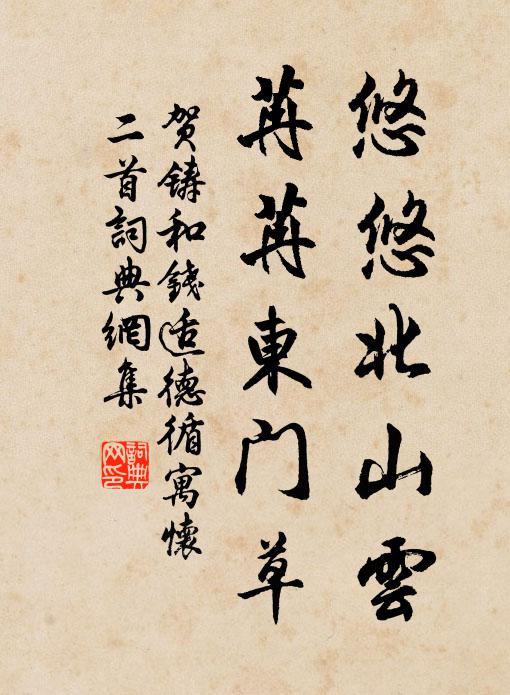 悠悠北山雲
苒苒東門草
賀鑄和錢适德循寓懷
二首詞典網集
詞典
网印